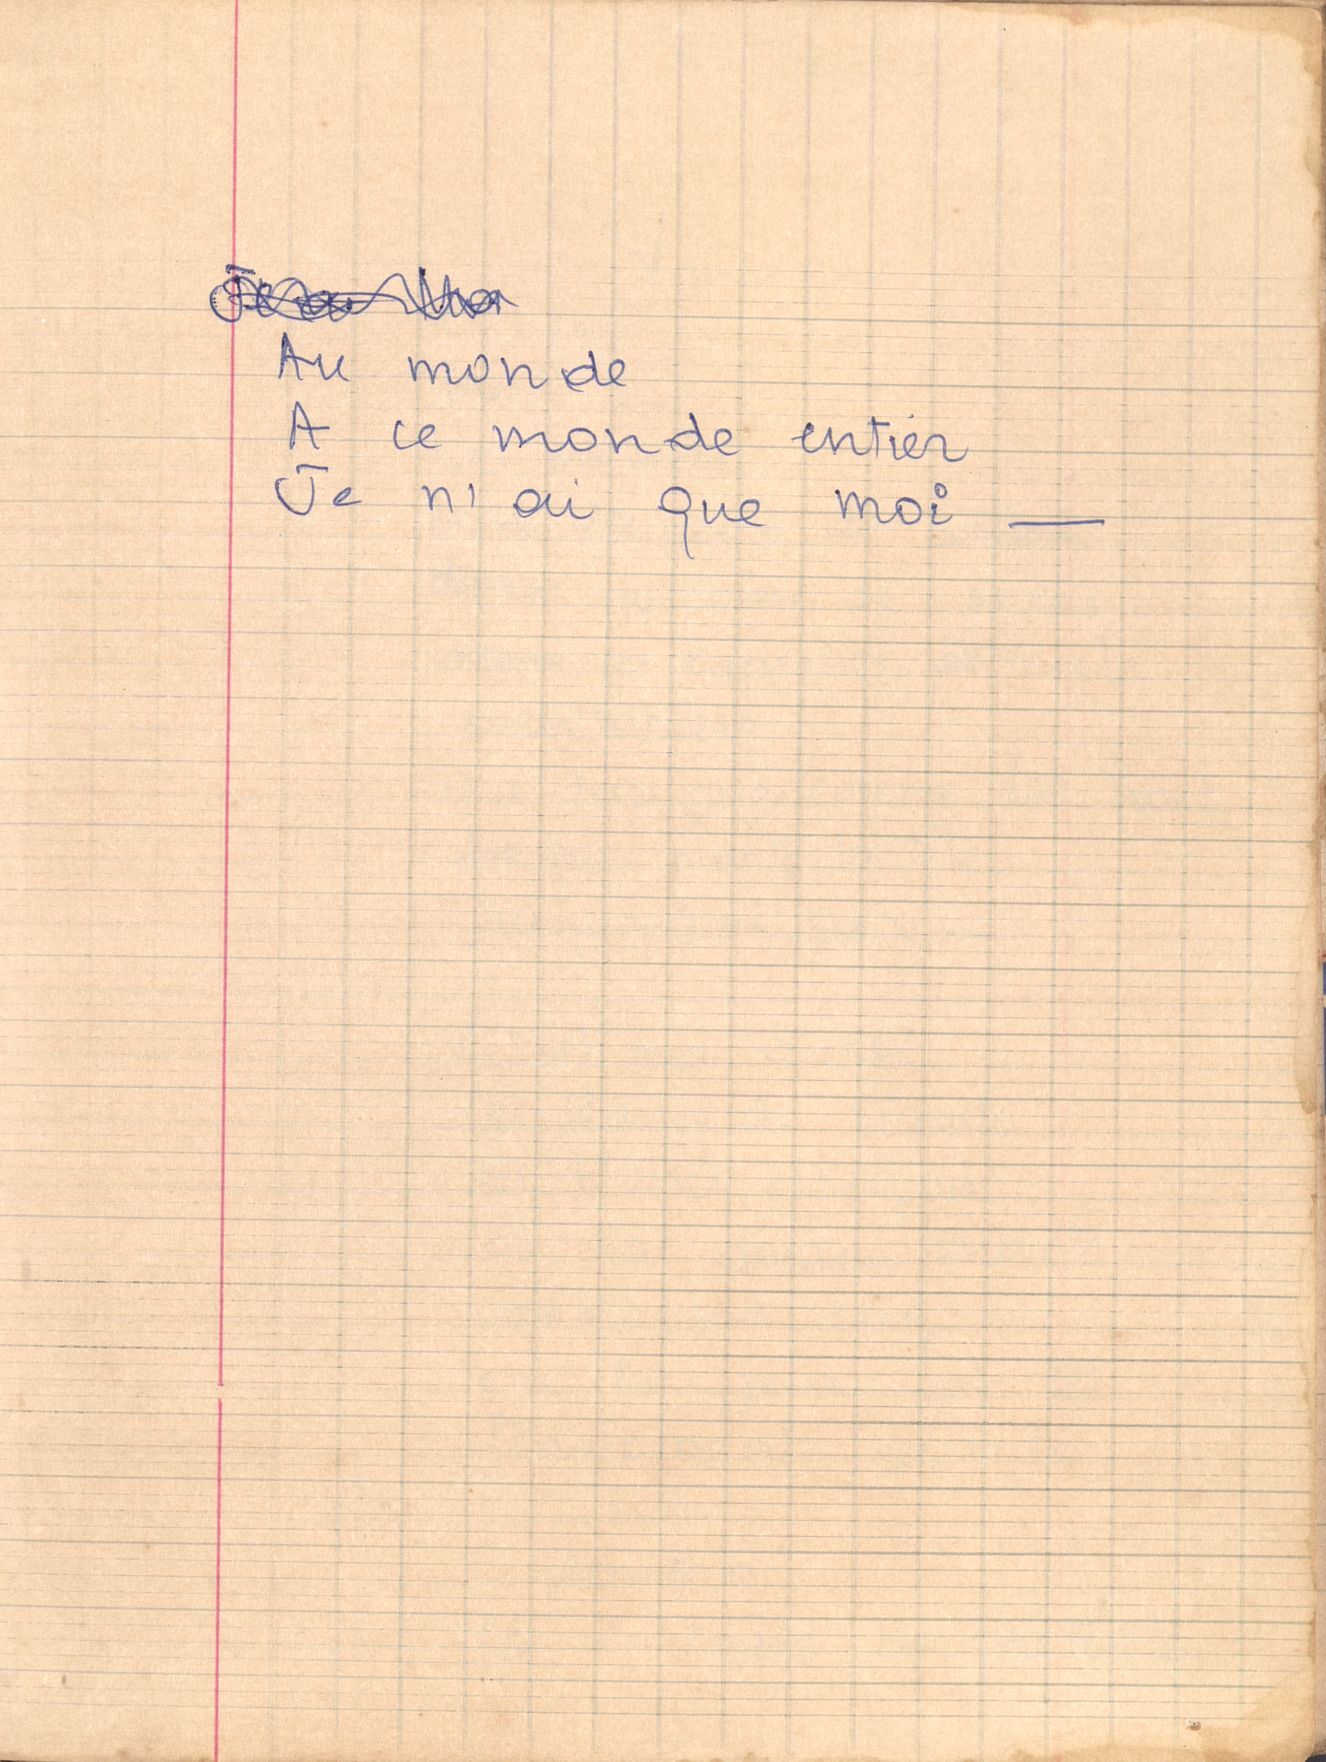 Au monde
A ce monde entier
Je n'ai que moi —